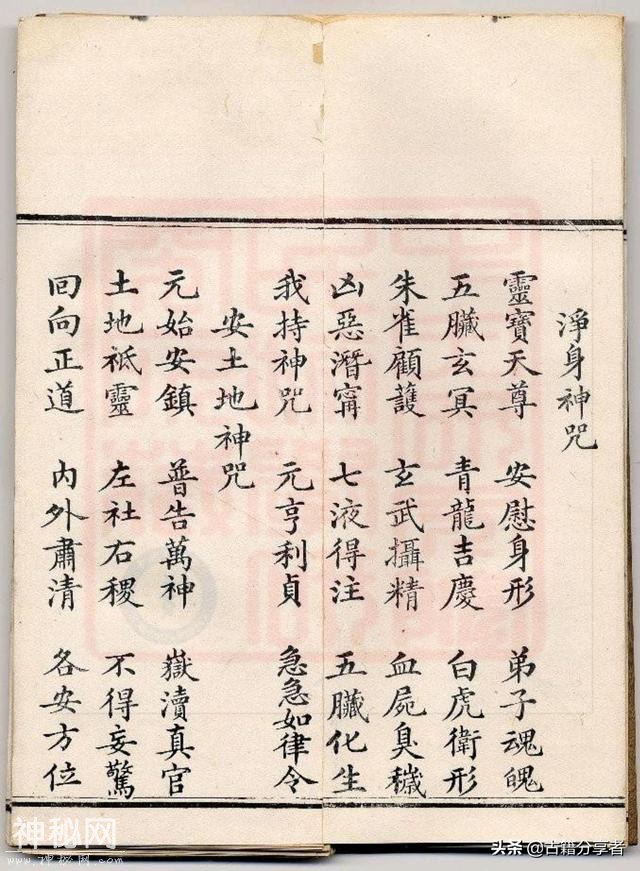 淨身神咒
靈寶天尊 安慰身形 弟子魂魄
五臟玄冥 青龍吉慶 白虎衛形
朱雀顧護 玄武攝精 血屍臭穢
凶惡潛甯 七液得注 五臟化生
我持神咒 元亨利貞 急急如律令
安土地神咒
元始安鎮 普告萬神 嶽瀆真官
土地祇靈 左社右稷 不得妄驚
回向正道 內外肅清 各安方位
神秘网
www.神秘网.com
头条 @古籍分享者